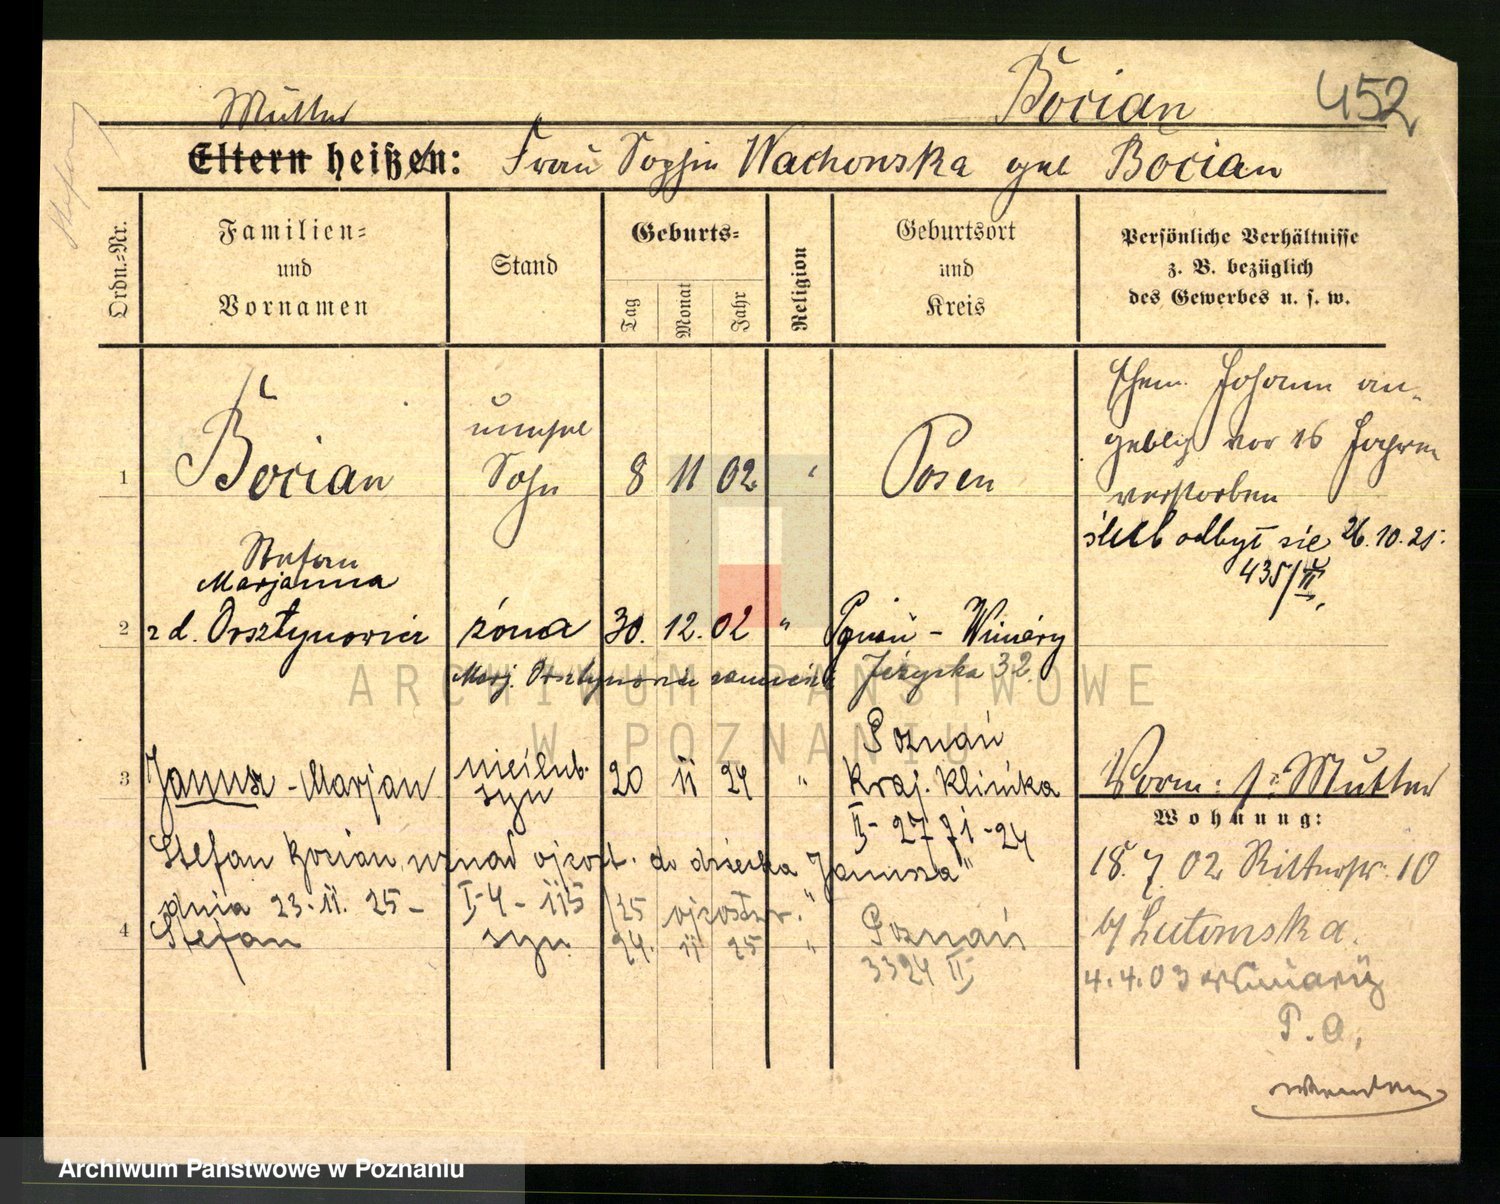 Bocian 452
Mutter
Eltern heißen: Frau Sophie Wachowska geb Bocian
Stefan
Ordn.-Nr.
Familien-
und
Vornamen
Stand
Geburts-
Tag
Monat
Jahr
Religion
Geburtsort
und
Kreis
Persönliche Verhältnisse
z. B. bezüglich
des Gewerbes u. s. w.
1 Bocian
Stefan
unehel
Sohn
8 11 02 "
Posen
Ehem. Johann an-
geblich vor 16 Jahren
verstorben
ślub odbył się 26.10.25.
435/II.
2 Marjanna
z d. Orsztynowicz
żona 30. 12. 02 "
Poznań - Winiary
Marj. Orsztynowicz
Jeżycka 32.
3 Janusz - Marjan
nieślub.
syn
20 11 24 "
Poznań
Kraj. Klinika
II - 2771 - 24
Vorm: s. Mutter
Wohnung:
Stefan Bocian uznał ojcost. do dziecka "Janusza"
dnia 23.11.25 - I-4 - 115/25 ojcostw.
4 Stefan
syn.
24. 11 25 "
Poznań
3324 II
18. 7 02 Ritterstr. 10
b/ Lutomska.
4.4.03 Winiary
P.A.
wenden
ARCHIWUM PAŃSTWOWE
W POZNANIU
Archiwum Państwowe w Poznaniu